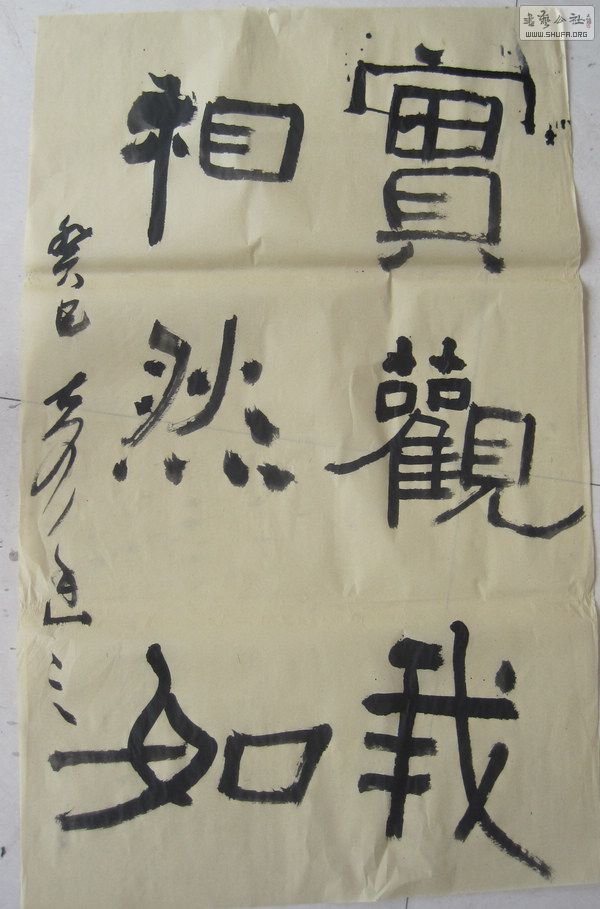 實觀我
相然如
癸巳
書藝公社
WWW.SHUFA.ORG